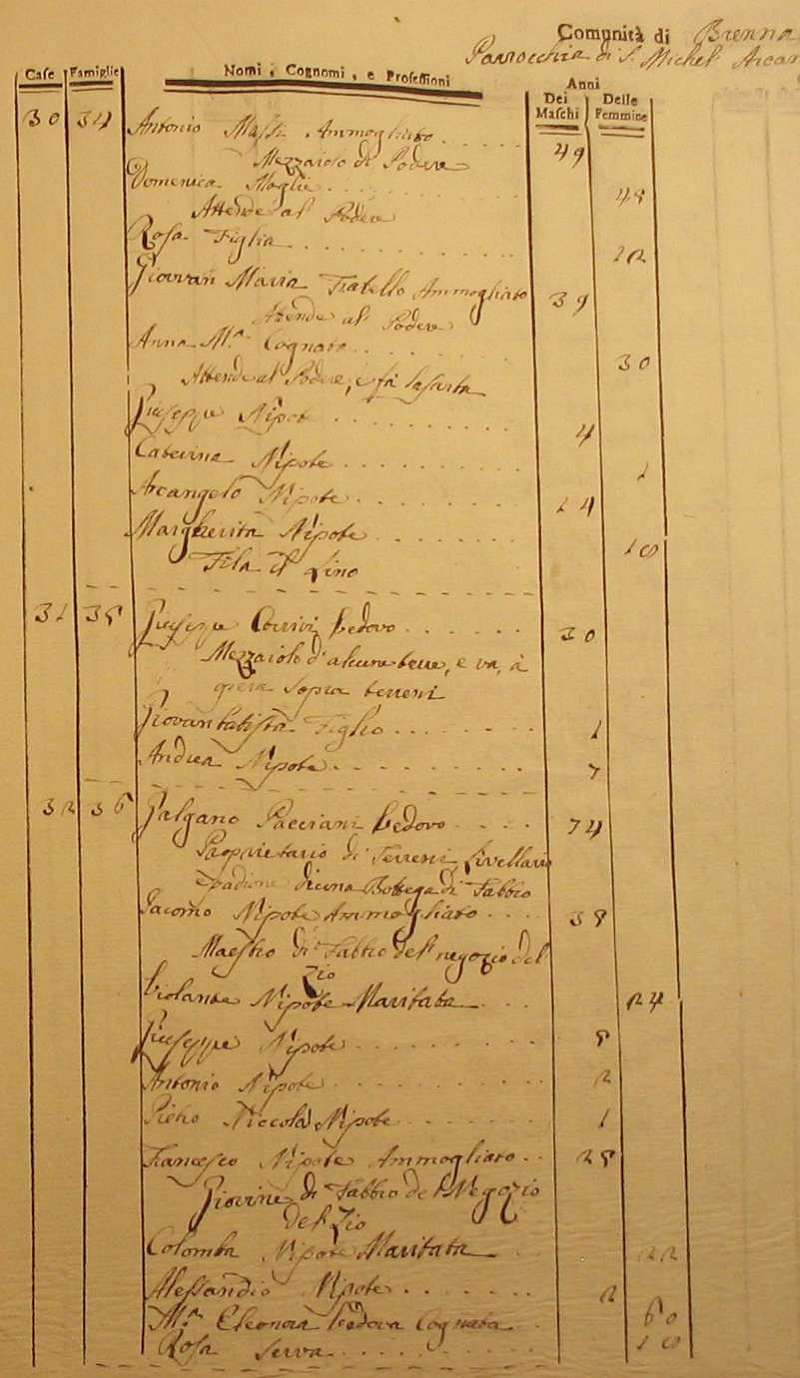 Comunità di Brenna
Parrocchia di S. Michel Arcan
Case Famiglie Nomi, Cognomi, e Professioni Anni
Dei Maschi Delle Femmine
30 34 Antonio Masi Ammogliato 49
Mezzaiolo di Podere
Domenica Moglie 48
Attende al Podere
Rosa Figlia 12
Giovan Maria Fratello Ammogliato 39
Attende al Podere
Anna Mª Cognata 30
Attende al Podere, e fà
Giuseppe Nipote 4
Caterina Nipote 1
Arcangelo Nipote 14
Margherita Nipote 10
Fila il lino
31 35 Giuseppe Vedovo 30
Mezzaiolo d'alcune terre, e va, à
opera sopra terreni
Giovan batista Figlio 1
Andrea Nipote 7
32 36 Galgano Pacciani Vedovo 74
Proprietario di Terreni, livellario
Padrone di una Bottega di Fabbro
Giacomo Nipote Ammogliato 38
Maestro di Fabbro del negozio del
Zio
Violante Nipote Maritata 24
Giuseppe Nipote 8
Antonio Nipote 2
Pietro Niccola Nipote 1
Francesco Nipote Ammogliato 28
Giovine di Fabbro del Negozio
del Zio
Colomba Nipote Maritata 22
Alessandro Nipote 2
Mª Eleonora Vedova Cognata 60
Rosa Serva 10